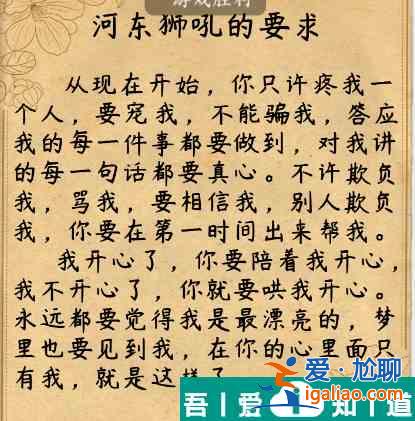 游戏胜利
河东狮吼的要求
从现在开始，你只许疼我一
个人，要宠我，不能骗我，答应
我的每一件事都要做到，对我讲
的每一句话都要真心。不许欺负
我，骂我，要相信我，别人欺负
我，你要在第一时间出来帮我。
我开心了，你要陪着我开心，
我不开心了，你就要哄我开心。
永远都要觉得我是最漂亮的，梦
里也要见到我，在你的心里面只
有我，就是这样了
爱·尬聊
igaliao.com
吾爱知道